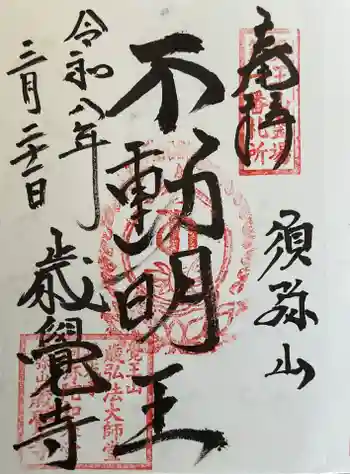 奉拝
須弥山
不動明王
歳覺寺
令和八年
三月二十一日
弘法大師